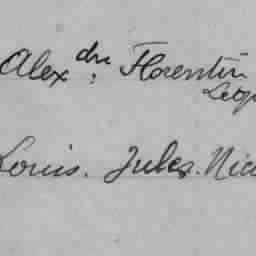 Alex dre Florentin
Louis. Jules. Nic